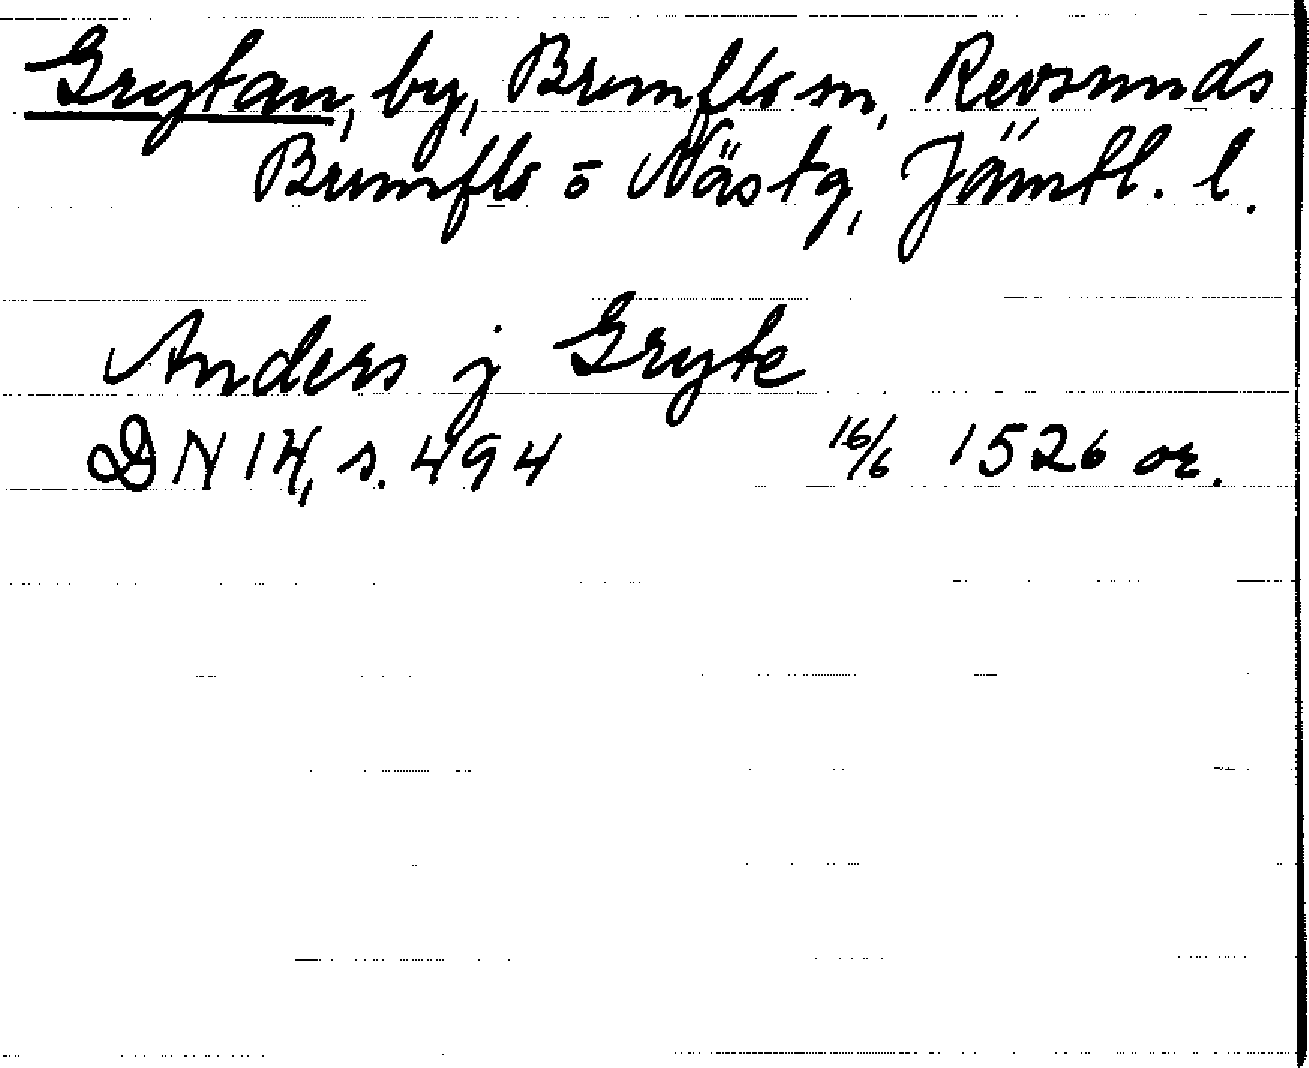 Grytan, by, Brunflo sn, Revsunds
Brunflo o Näs tg, Jämtl. l.
Anders j Gryte
DN 14, s. 494 16/6 1526 or.